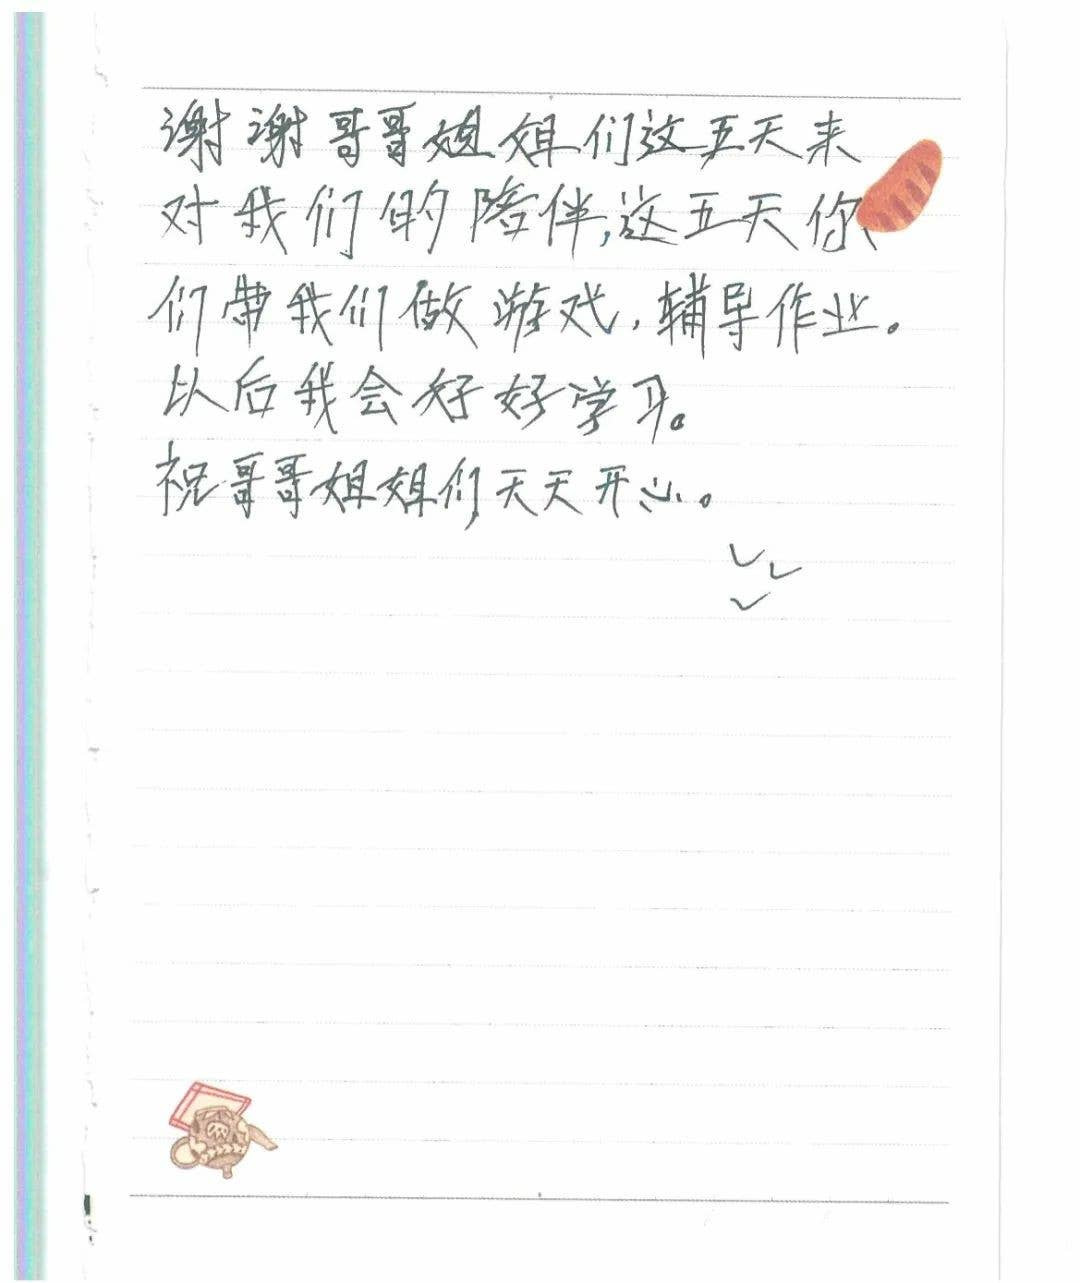 谢谢哥哥姐姐们这五天来
对我们的陪伴,这五天你
们带我们做游戏,辅导作业。
以后我会好好学习。
祝哥哥姐姐们天天开心。